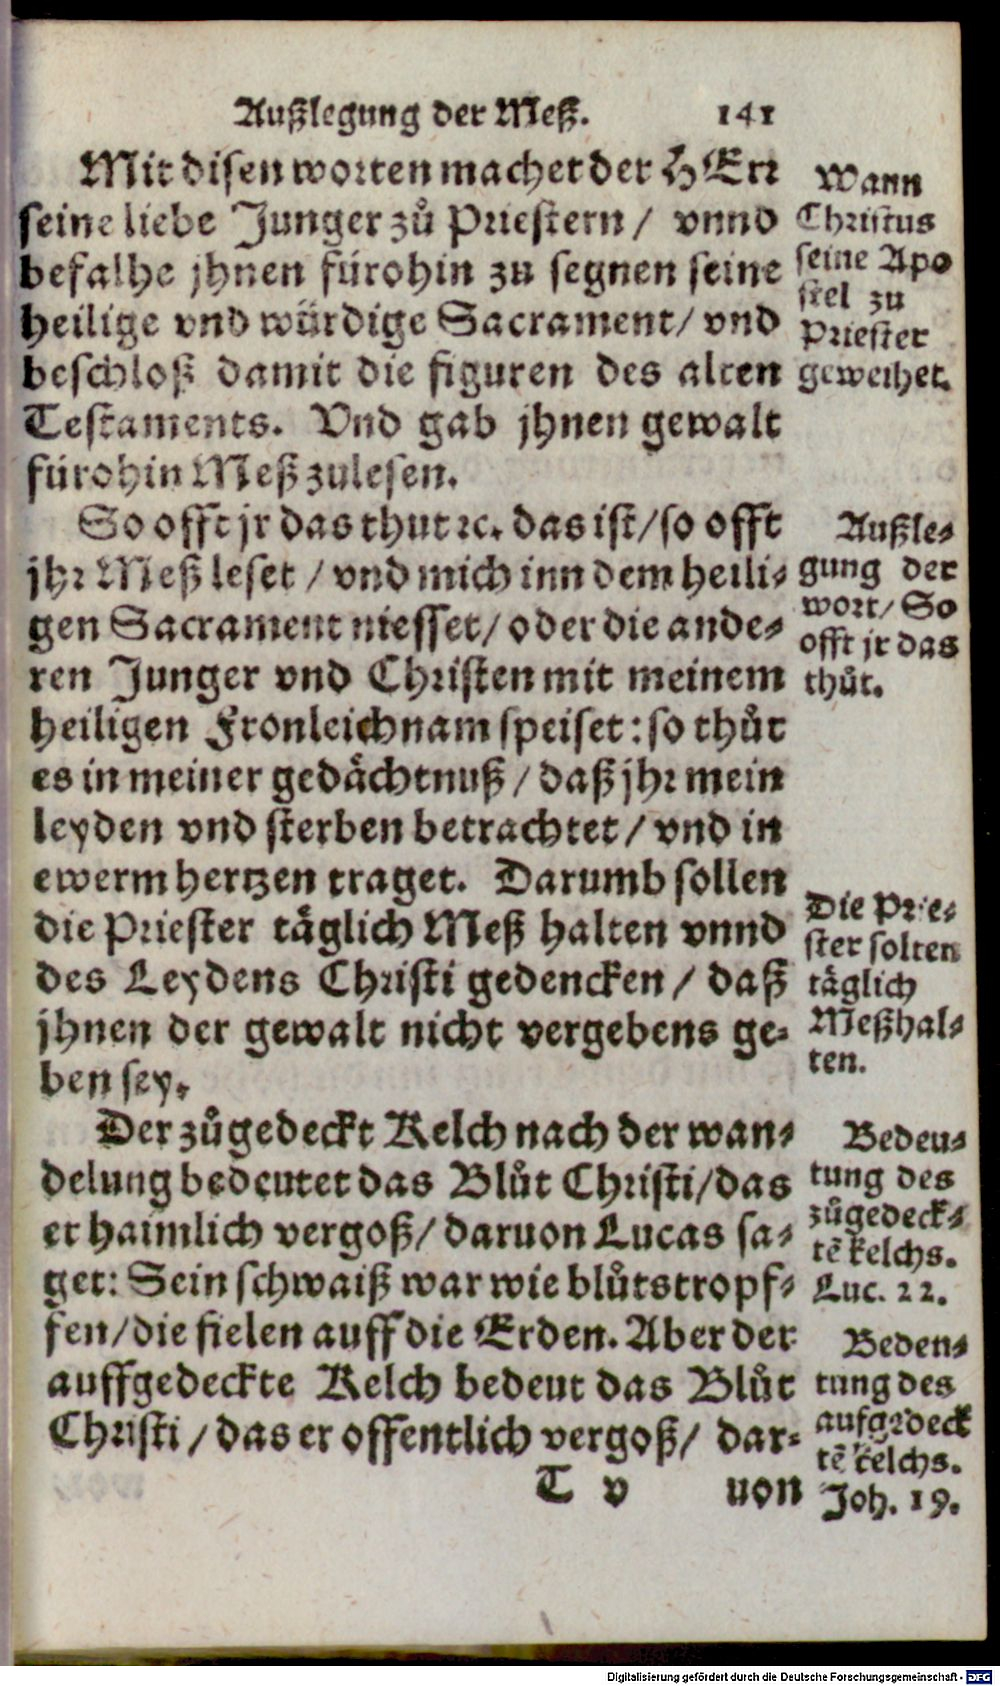 Außlegung der Meß. 141
Mit disen worten machet der HErr
seine liebe Junger zů Priestern / vnnd
befalhe jhnen fürohin zu segnen seine
heilige vnd würdige Sacrament / vnd
beschloß damit die figuren des alten
Testaments. Vnd gab jhnen gewalt
fürohin Meß zulesen.
So offt jr das thut ꝛc. das ist / so offt
jhr Meß leset / vnd mich inn dem heili-
gen Sacrament niesset / oder die ande-
ren Junger vnd Christen mit meinem
heiligen Fronleichnam speiset: so thůt
es in meiner gedächtnuß / daß jhr mein
leyden vnd sterben betrachtet / vnd in
ewerm hertzen traget. Darumb sollen
die Priester täglich Meß halten vnnd
des Leydens Christi gedencken / daß
jhnen der gewalt nicht vergebens ge-
ben sey.
Der zůgedeckt Kelch nach der wan-
delung bedeutet das Blůt Christi / das
er haimlich vergoß / daruon Lucas sa-
get: Sein schwaiß war wie blůtstropf-
fen / die fielen auff die Erden. Aber der
auffgedeckte Kelch bedeut das Blůt
Christi / das er offentlich vergoß / dar-
T v uon
Wann
Christus
seine Apo
stel zu
Priester
geweihet.
Außle-
gung der
wort / So
offt jr das
thůt.
Die Prie-
ster solten
täglich
Meßhal-
ten.
Bedeu-
tung des
zůgedeck-
tē kelchs.
Luc. 22.
Beden-
tung des
aufgedeck
tē kelchs.
Joh. 19.
Digitalisierung gefördert durch die Deutsche Forschungsgemeinschaft - DFG